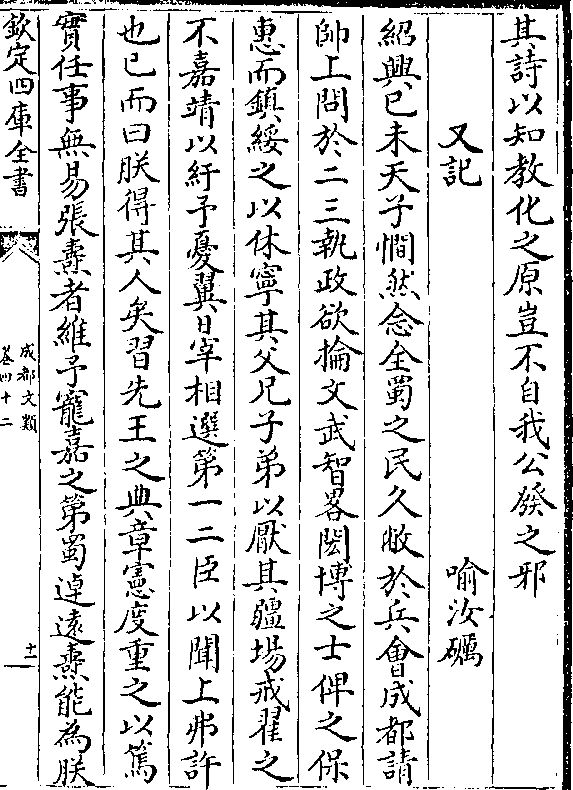 其詩以知教化之原豈不自我公發之邪
又記　喻汝礪
紹興己未天子憪然念全蜀之民久敝於兵會成都請
帥上問於二三執政欲掄文武智畧閎博之士俾之保
惠而鎮綏之以休寧其父兄子弟以厭其疆場戒翟之
不嘉靖以紓予憂翼日宰相選第一二臣以聞上弗許
也已而曰朕得其人矣習先王之典章憲度重之以篤
實任事無易張燾者維予寵嘉之第蜀逴遠燾能為朕
欽定四庫全書
成都文類
卷四十二
十二